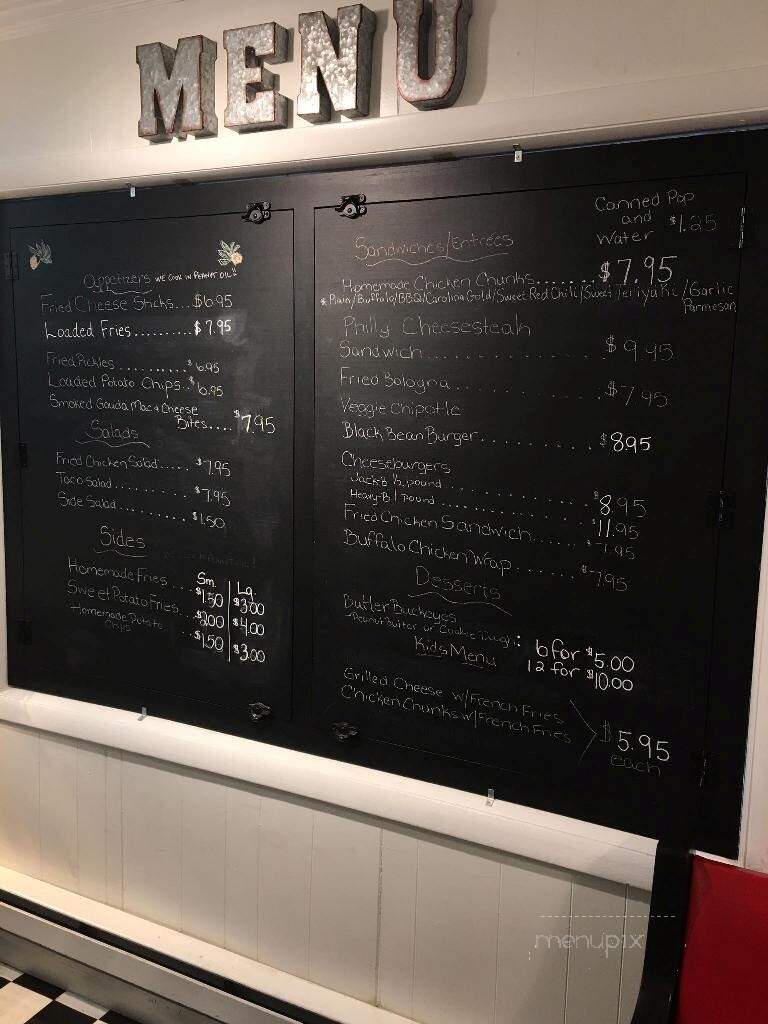 MENU
Appetizers WE COOK IN PEANUT OIL!!
Fried Cheese Sticks...$6.95
Loaded Fries..........$7.95
Fried Pickles..........$6.95
Loaded Potato Chips.$6.95
Smoked Gouda Mac & Cheese
Bites....$7.95
Salads
Fried Chicken Salad.....$7.95
Taco Salad..........$7.95
Side Salad..........$1.50
Sides
Sm. Lg.
Homemade Fries...$1.50 $3.00
Sweet Potato Fries...$2.00 $4.00
Homemade Potato
Chips...$1.50 $3.00
Canned Pop
and $1.25
Water
Sandwiches/Entrées
Homemade Chicken Chunks.......$7.95
*Plain/Buffalo/BBQ/Carolina Gold/Sweet Red Chili/Sweet Teriyaki/Garlic
Parmesan
Philly Cheesesteak
Sandwich....................$9.45
Fried Bologna................$7.95
Veggie Chipotle
Black Bean Burger............$8.95
Cheeseburgers
Jack-B ½ pound..............$8.95
Heavy-B 1 pound..............$11.95
Fried Chicken Sandwich......$7.95
Buffalo Chicken Wrap........$7.95
Desserts
Butler Buckeyes
Peanut Butter or Cookie Dough: 6 for $5.00
12 for $10.00
Kids Menu
Grilled Cheese w/French Fries
Chicken Chunks w/French Fries
$5.95
each
menupix